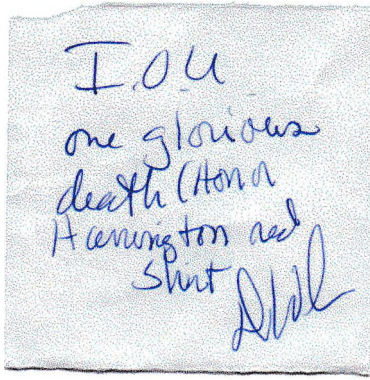 I.O.U
one glorious
death (Honor
Harrington red
shirt